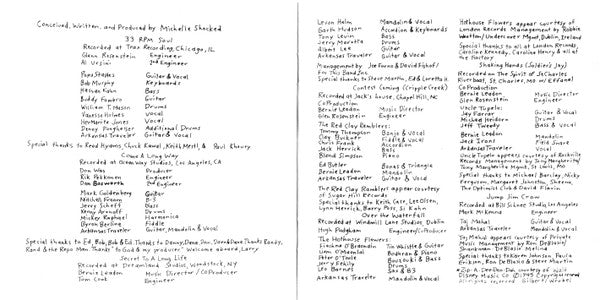 Conceived, Written, and Produced by Michelle Shocked
33 RPM Soul
Recorded at Trax Recording, Chicago, IL
Glenn Rosenstein Engineer
Al Ursini 2nd Engineer
Pops Staples Guitar & Vocal
Bob Murphy Keyboards
Hassan Kahn Bass
Buddy Fambro Guitar
William T. Mason Drums
Vanessa Holmes Vocal
Normarite Jones Vocal
Denny Additional Drums
Arkansas Traveler Guitar & Vocal
Special thanks to Reed Hyams, Chuck Kawal, Keith Mestl, & Paul Khoury
Come A Long Way
Recorded at Oceanway Studios, Los Angeles, CA
Don Was Producer
Rik Pekkonen Engineer
Dan Bosworth 2nd Engineer
Mark Goldenberg Guitar
Mitchel Froom B-3
Jerry Scheff Bass
Kenny Aronoff Drums
Mickey Raphael Harmonica
Byron Berline Fiddle
Arkansas Traveler Guitar, Mandolin & Vocal
Special thanks to Ed, Bob, Bob & Ed. Thanks to Danny, Dana, Dan, Derek & Dave. Thanks Randy,
Rand & the Rapo Man. Thanks to God & my producer. Welcome aboard, Larry
Secret To A Long Life
Recorded at Dreamland Studios, Woodstock, NY
Bernie Leadon Music Director / CoProducer
Tom Cook Engineer
Levon Helm Mandolin & Vocal
Garth Hudson Accordion & Keyboards
Tony Levin Bass
Jerry Marotta Drums
Albert Lee Guitar
Arkansas Traveler Guitar & Vocal
Management by Joe Forno & David Fishof/
For This Band Inc
Special thanks to Steve Martin, Ed & Loretta II
Contest Coming (Cripple Creek)
Recorded at Jack's House, Chapel Hill, NC
CoProduction
Bernie Leadon Music Director
Glen Rosenstein Engineer
The Red Clay Ramblers:
Tommy Thompson Banjo & Vocal
Clay Buckner Fiddle & Vocal
Chris Frank Accordion
Jack Herrick Bass
Bland Simpson Piano
Ed Butler Bones & Triangle
Bernie Leadon Mandolin
Arkansas Traveler Guitar & Vocal
The Red Clay Ramblers appear courtesy
of Sugar Hill Records
Special thanks to Keith Case, Lee Olsen,
Lynn Herrick, Barry Poss, Si Kahn
Over the Waterfall
Recorded at Windmill Lane Studios, Dublin
Hugh Padgham Engineer/CoProducer
The Hothouse Flowers:
Fiachna O'Braonain Tin Whistle & Guitar
Liam O'Maonlai Bodhran & Piano
Peter O'Toole Bouzouki & Bass
Jerry Fehily Drums
Leo Barnes Sax & B3
Arkansas Traveler Mandolin & Vocal
Hothouse Flowers appear courtesy of
London Records. Management by Robbie
Wootton/Underworld Mgmt, Dublin, Ireland
Special thanks to all at London Records,
Carolyn Kennedy, Caroline Henry & all at
the Factory
Shaking Hands (Soldier's Joy)
Recorded on The Spirit of St Charles
Riverboat, St Charles, MO w/ Effanel
CoProduction
Bernie Leadon Music Director
Glen Rosenstein Engineer
Uncle Tupelo:
Jay Farrar Guitar & Vocal
Michael Heidorn Drums
Jeff Tweedy Bass & Vocal
Bernie Leadon Mandolin
Jack Irons Field Snare
Arkansas Traveler Vocal
Uncle Tupelo appears courtesy of Rockville
Records. Management by Tony Margherita/
Tony Margherita Mgmt, St Louis, MO
Special thanks to Michael Barclay, Nicky
Ferguson, Margaret Johnston, Sheena,
The Optimist Club & David Florin
Jump Jim Crow
Recorded at Bill Schnee Studio, Los Angeles
Mark McKenna Engineer
Taj Mahal Guitar & Vocal
Arkansas Traveler Mandolin & Vocal
Taj Mahal appears courtesy of Private
Music. Management by Ron DeBlasio/
SharkmanDeBlasio Melina
Special thanks to Karen Johnson, Paula
Erikson, Ron DeBlasio & Steve Martin
* Zip-A-Dee-Doo-Dah courtesy of Walt
Disney Music Co. ©1945 Copyright renewed
All rights reserved. Gilbert/Wrubel